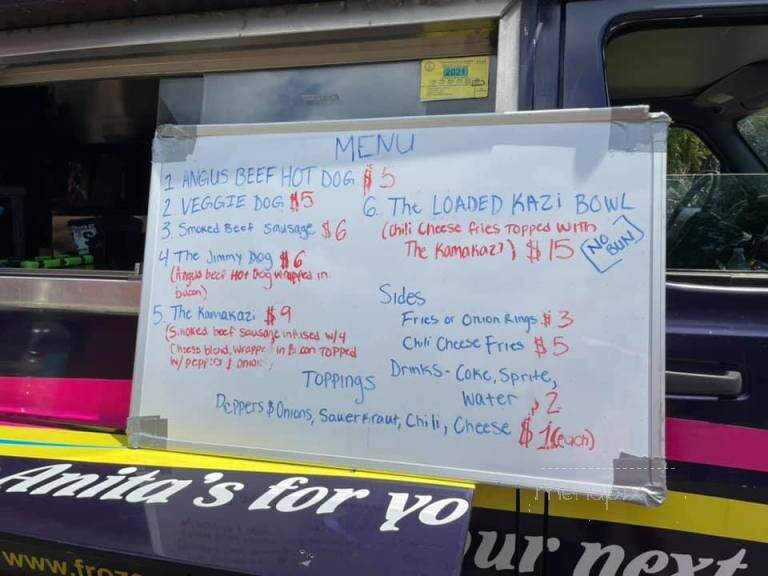 2021
MENU
1 ANGUS BEEF HOT DOG $5
2 VEGGIE DOG $5
3. Smoked Beef Sausage $6
4 The Jimmy Dog $6
(Angus beef Hot Dog wrapped in
bacon)
5. The Kamakazi $9
(Smoked beef sausage infused w/4
Cheese blend, wrapped in Bacon TOPPED
w/ peppers & onions)
6. The LOADED KAZI BOWL
(Chili Cheese fries TOPPED WITH
The Kamakazi) $15
NO
BUN
Sides
Fries or Onion Rings $3
Chili Cheese Fries $5
Drinks - Coke, Sprite,
Water $2
TOPPINGS
Peppers & Onions, Sauerkraut, Chili, Cheese $1 (each)
menupix
Anita's for yo
ur next
www.froz